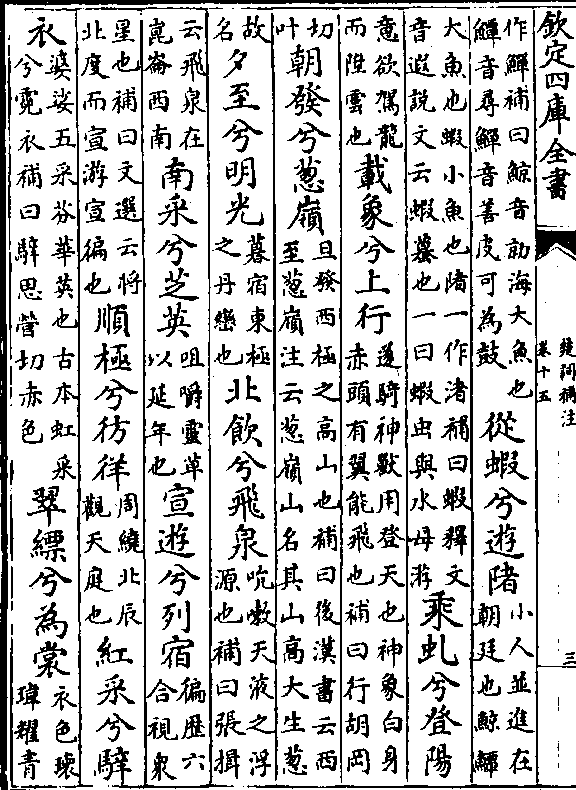 欽定四庫全書
楚詞補注
卷十五
三
作鱓補曰鯨音勍海大魚也
鱓音尋鱓音善皮可為鼓
從蝦兮遊陼
小人並進在
朝廷也鯨鱏
大魚也蝦小魚也陼一作渚補曰蝦釋文
音遐説文云蝦蟇也一曰蝦虫與水母游
乘虬兮登陽
意欲駕龍
而陞雲也
載象兮上行
遂騎神獸用登天也神象白身
赤頭有翼能飛也補曰行胡岡
切
叶
朝發兮葱嶺
旦發西極之高山也補曰後漢書云西
至葱嶺注云葱嶺山名其山高大生葱
故
名
夕至兮明光
暮宿東極
之丹巒也
北飲兮飛泉
吮嗽天液之浮
源也補曰張揖
云飛泉在
崑崙西南
南采兮芝英
咀嚼靈草
以延年也
宣遊兮列宿
徧歴六
合視衆
星也補曰文選云將
北度而宣游宣徧也
順極兮彷徉
周繞北辰
觀天庭也
紅采兮騂
衣
婆娑五采芬華英也古本虹采
兮霓衣補曰騂思營切赤色
翠縹兮為裳
衣色瓌
瑋耀青